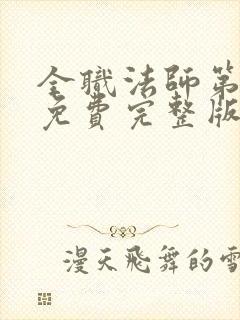 全職法師第
免費完整版
漫天飛舞的雪